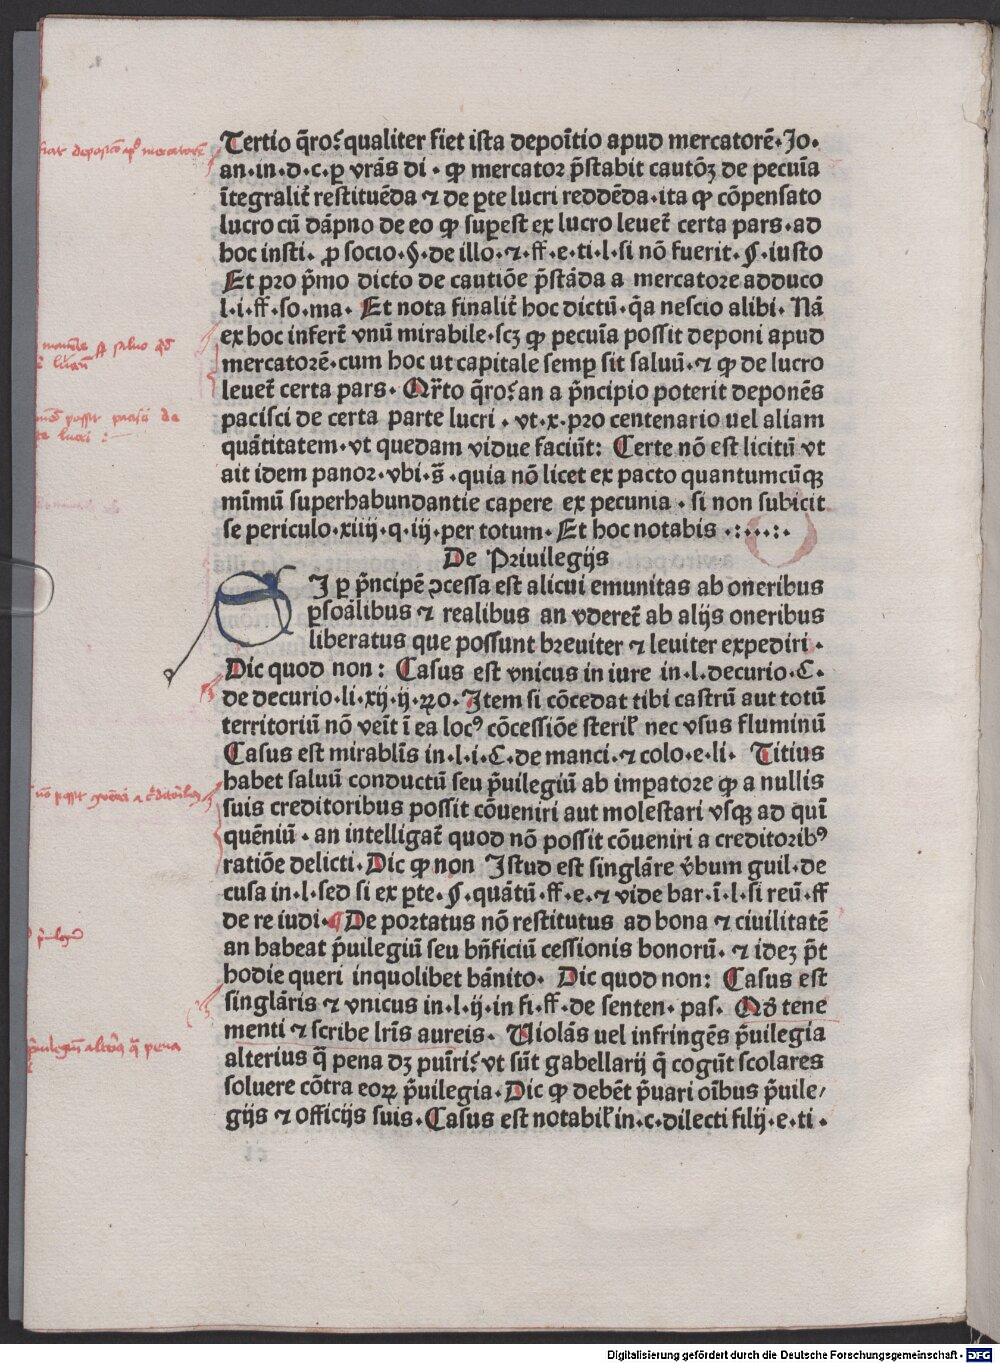 Tertio q̄ro⸵ qualiter fiet ista depoĩtio apud mercatorē· Jo·
an·in·d·c·ꝑ vrãs di · ꝙ mercator p̃stabit cautõꝫ de pecuĩa
ĩtegralit̃ restituẽda ⁊ de ꝑte lucri reddẽda·ita ꝙ cõpensato
lucro cũ dãpno de eo ꝙ suꝑest ex lucro leuet̃ certa pars·ad
hoc insti· ꝓ socio·§·de illo·⁊·ff·e·ti·l·si nõ fuerit·§·iusto
Et pro p̃mo dicto de cautiõe p̃stãda a mercatore adduco
l·i·ff·so·ma· Et nota finalit̃ hoc dictũ·q̃a nescio alibi· Nã
ex hoc infert̃ vnũ mirabile·scꝫ ꝙ pecuĩa possit deponi apud
mercatorẽ·cum hoc ut capitale semꝑ sit saluũ·⁊ ꝙ de lucro
leuet̃ certa pars· Qr̃to q̃ro⸵ an a p̃ncipio poterit deponẽs
pacisci de certa parte lucri · vt·x·pro centenario uel aliam
quãtitatem·vt quedam vidue faciũt: Certe nõ est licitũ vt
ait idem panor·vbi·s̃·quia nõ licet ex pacto quantumcũqꝫ
mĩmũ superhabundantie capere ex pecunia · si non subicit
se periculo·xiiij·q·iij·per totum· Et hoc notabis ·:·..:·
De Priuilegijs
SJ ꝑ p̃ncipẽ ꝯcessa est alicui emunitas ab oneribus
ꝑsoãlibus ⁊ realibus an vderet̃ ab alijs oneribus
liberatus que possunt breuiter ⁊ leuiter expediri ·
Dic quod non: Casus est vnicus in iure in·l·decurio·C·
de decurio·li·xij·ij·ꝛꝛo·Item si cõcedat tibi castrũ aut totũ
territoriũ nõ veit̃ ĩ ea locꝰ cõcessiõe steril̃ nec vsus fluminũ
Casus est mirablĩs in·l·i·C·de manci·⁊ colo·e·li· Titius
habet saluũ conductũ seu p̃uilegiũ ab imꝑatore ꝙ a nullis
suis creditoribus possit cõueniri aut molestari vsqꝫ ad quĩ
quẽniũ · an intelligat̃ quod nõ possit cõueniri a creditoribꝰ
ratiõe delicti·Dic ꝙ non Istud est singlãre v̓bum guil·de
cusa in·l·sed si ex ꝑte·§·quãtũ·ff·e·⁊ vide bar·ĩ·l·si reũ·ff
de re iudi·¶De portatus nõ restitutus ad bona ⁊ ciuilitatẽ
an habeat p̃uilegiũ seu bñficiũ cessionis bonorũ· ⁊ ideꝫ p̃t
hodie queri inquolibet bãnito· Dic quod non: Casus est
singlãris ⁊ vnicus in·l·ij·in fi·ff·de senten·pas· Qd̃ tene
menti ⁊ scribe lrĩs aureis· Uiolãs uel infringẽs p̃uilegia
alterius q̃ pena dꝫ puĩri⸵ vt sũt gabellarij q̃ cogũt scolares
soluere cõtra eoꝝ p̃uilegia·Dic ꝙ debẽt p̃uari oĩbus p̃uile/
gijs ⁊ officijs suis·Casus est notabil̃ in·c·dilecti filij·e·ti·
Digitalisierung gefördert durch die Deutsche Forschungsgemeinschaft - DFG